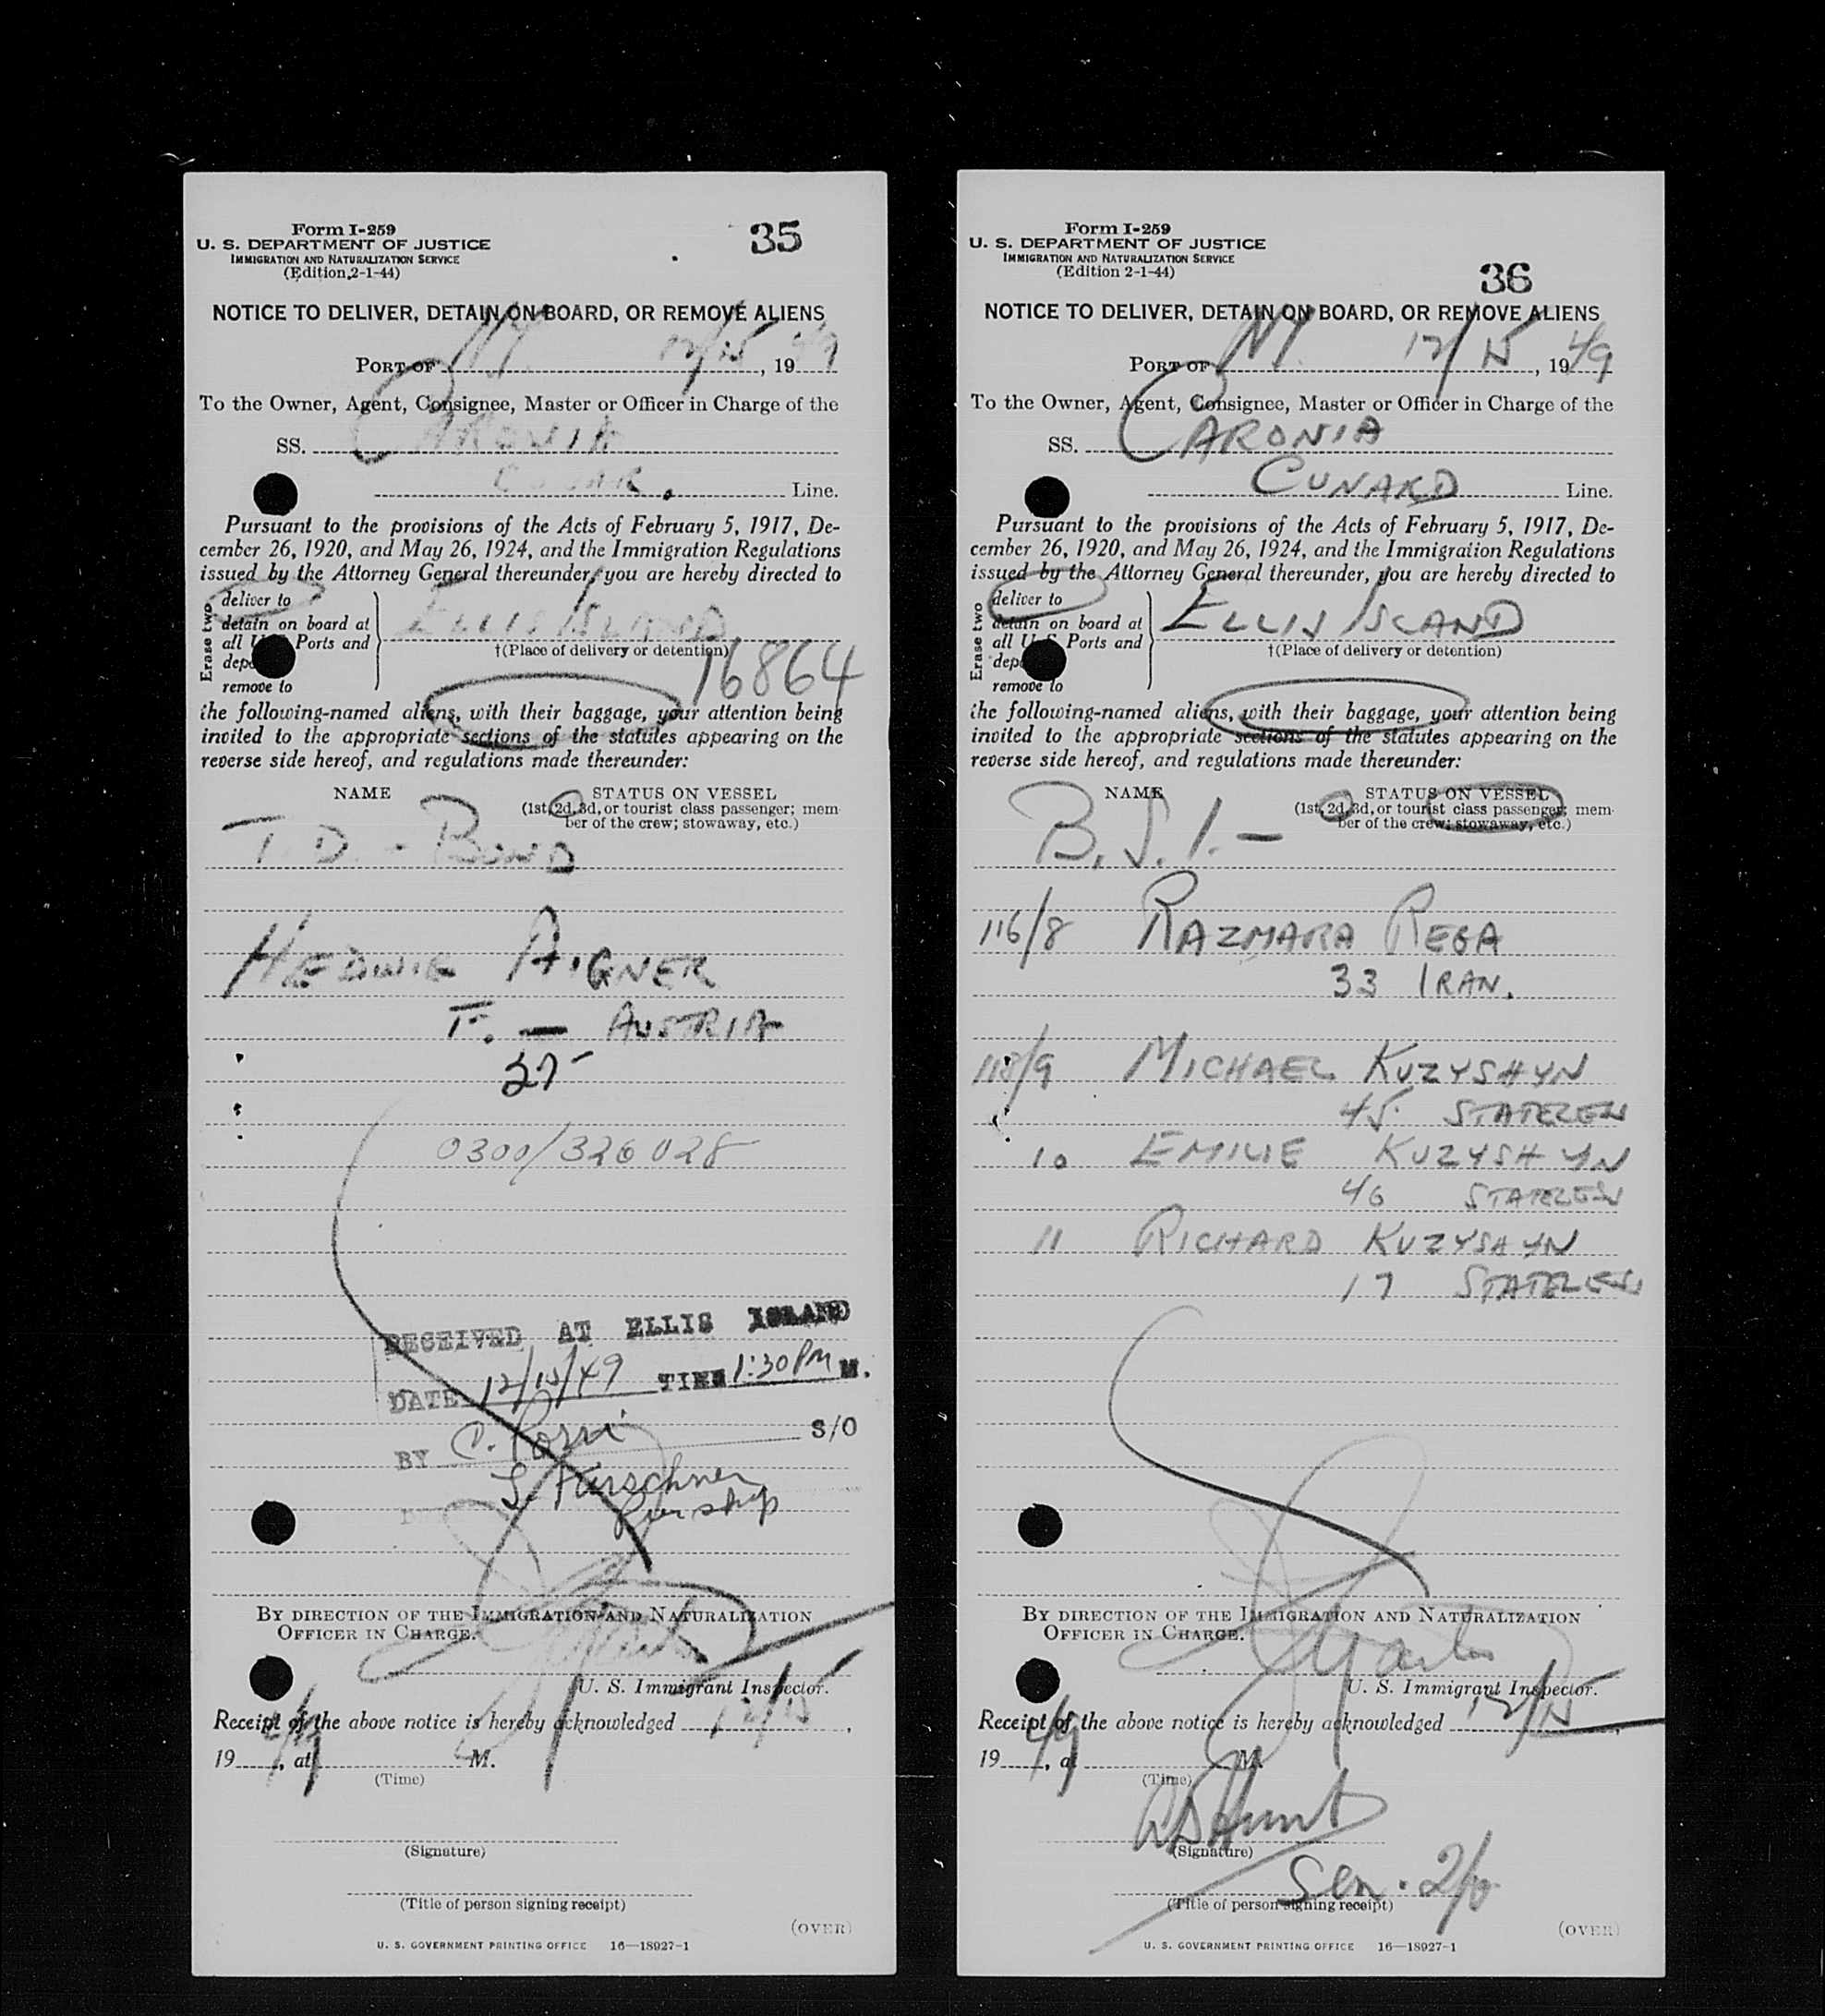 Form I-259
U. S. DEPARTMENT OF JUSTICE
IMMIGRATION AND NATURALIZATION SERVICE
(Edition 2-1-44)
35
NOTICE TO DELIVER, DETAIN ON BOARD, OR REMOVE ALIENS
PORT OF NY. 12/15, 1949
To the Owner, Agent, Consignee, Master or Officer in Charge of the
SS. CARONIA
Line.
Pursuant to the provisions of the Acts of February 5, 1917, De-
cember 26, 1920, and May 26, 1924, and the Immigration Regulations
issued by the Attorney General thereunder, you are hereby directed to
Erase two
deliver to
detain on board at
all U S Ports and
remove to
ELLIS ISLAND
†(Place of delivery or detention)
16864
the following-named aliens, with their baggage, your attention being
invited to the appropriate sections of the statutes appearing on the
reverse side hereof, and regulations made thereunder:
NAME STATUS ON VESSEL
(1st, 2d, 3d, or tourist class passenger; mem-
ber of the crew; stowaway, etc.)
T. D. - BOND
HEDWIG AIGNER
F. — AUSTRIA
0300/326028
RECEIVED AT ELLIS ISLAND
DATE 12/15/49 TIME 1:30 PM M.
BY C. S/O
BY DIRECTION OF THE IMMIGRATION AND NATURALIZATION
OFFICER IN CHARGE.
U. S. Immigrant Inspector.
Receipt of the above notice is hereby acknowledged 12/15,
1949, at M.
(Time)
(Signature)
(Title of person signing receipt)
(OVER)
U. S. GOVERNMENT PRINTING OFFICE 16—18927-1
Form I-259
U. S. DEPARTMENT OF JUSTICE
IMMIGRATION AND NATURALIZATION SERVICE
(Edition 2-1-44)
36
NOTICE TO DELIVER, DETAIN ON BOARD, OR REMOVE ALIENS
PORT OF NY. 12/15, 1949
To the Owner, Agent, Consignee, Master or Officer in Charge of the
SS. CARONIA
CUNARD Line.
Pursuant to the provisions of the Acts of February 5, 1917, De-
cember 26, 1920, and May 26, 1924, and the Immigration Regulations
issued by the Attorney General thereunder, you are hereby directed to
Erase two
deliver to
detain on board at
all U S Ports and
remove to
ELLIS ISLAND
†(Place of delivery or detention)
the following-named aliens, with their baggage, your attention being
invited to the appropriate sections of the statutes appearing on the
reverse side hereof, and regulations made thereunder:
NAME STATUS ON VESSEL
(1st, 2d, 3d, or tourist class passenger; mem-
ber of the crew; stowaway, etc.)
B.S.I. —
116/8 RAZMARA REGA
33 IRAN.
118/9 MICHAEL KUZYSHYN
45. STATELESS
10 EMILIE KUZYSHYN
46 STATELESS
11 RICHARD KUZYSHYN
17 STATELESS
BY DIRECTION OF THE IMMIGRATION AND NATURALIZATION
OFFICER IN CHARGE.
U. S. Immigrant Inspector.
Receipt of the above notice is hereby acknowledged 12/15,
1949, at M.
(Time)
(Signature)
Sen. 2/0
(Title of person signing receipt)
(OVER)
U. S. GOVERNMENT PRINTING OFFICE 16—18927-1